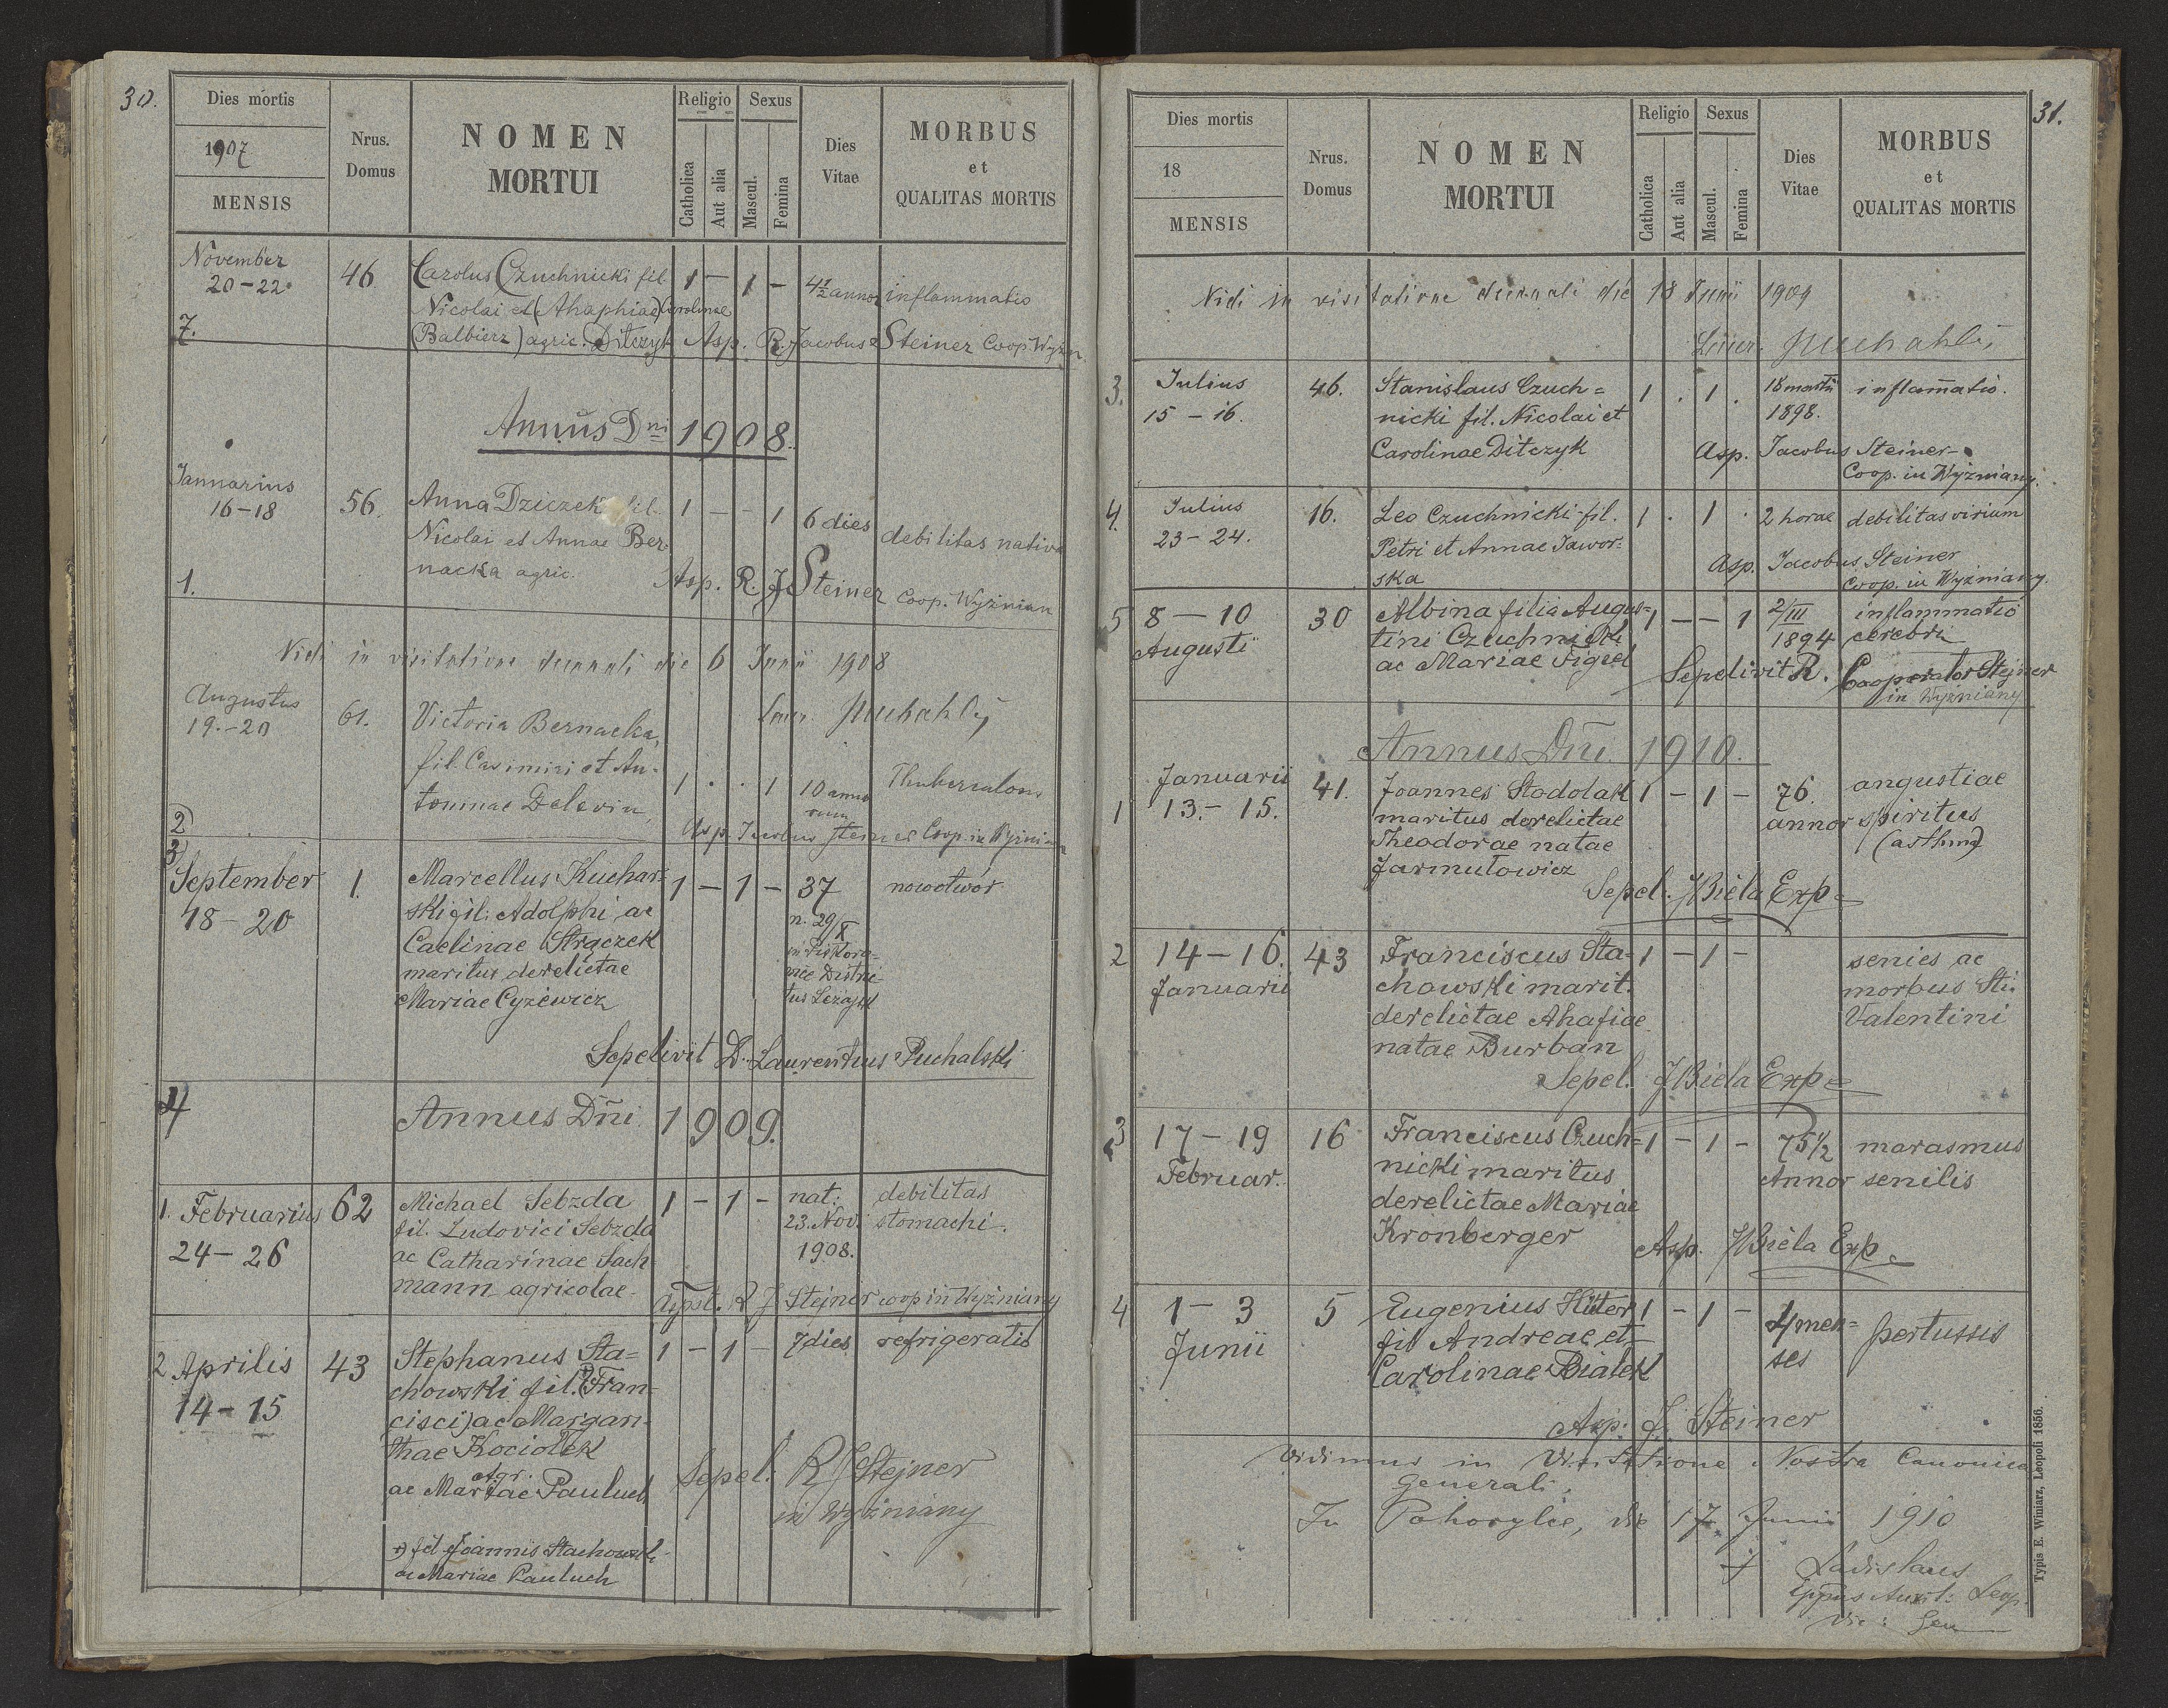 30.
Dies mortis
1907
MENSIS
Nrus.
Domus
NOMEN
MORTUI
Religio
Catholica
Aut alia
Sexus
Mascul.
Femina
Dies
Vitae
MORBUS
et
QUALITAS MORTIS
November
20-22
7.
46
Carolus Czuchnicki fil.
Nicolai et (Ahaphiae) Carolinae
(Balbierz) agric. Ditczyk
1 — 1 —
4 1/2 annor
inflammatio
Asp. R. Jacobus Steiner Coop. Wyżn
Annus Dni 1908.
Januarius
16-18
1.
56.
Anna Dziczek fil.
Nicolai et Annae Ber-
nacka agric.
1 — — 1
6 dies
debilitas nativa
Asp. R. J Steiner Coop. Wyżnian
Vidi in visitatione decanali die 6 Junii 1908
Laur. Puchalski
Augustus
19.-20
2
61.
Victoria Bernacka,
fil. Casimiri et An-
toninae Delevin
1 . . 1
10 anno
rum
Thuberculous
Asp. Jacobus Steiner Coop. in Wyżnian
3
September
18-20
1.
Marcellus Kuchar-
ski fil. Adolphi ac
Caelinae Strączek
maritus derelictae
Mariae Cyzewicz
1 — 1 —
37
n. 29/X
nowotwór
Sepelivit D. Laurentius Puchalski
4
Annus Dñi 1909.
1. Februarius
24-26
62
Michael Sebzda
fil. Ludovici Sebzda
ac Catharinae Jach
mann agricolae
1 — 1 —
nat:
23. Nov.
1908.
debilitas
stomachi.
Aspst. R J Stejner coop in Wyżniany
2 Aprilis
14-15
43
Stephanus Sta=
chowski fil. (Fran-
cisci) ac Margari-
thae Kociołek
Agr.
ac Mariae Pauluch
1 — 1 —
7 dies
refrigeratio
Sepel. R J Stejner
in Wyżniany
+) fil Joannis Stachowski
ac Mariae Pauluch
31.
Dies mortis
18
MENSIS
Nrus.
Domus
NOMEN
MORTUI
Religio
Catholica
Aut alia
Sexus
Mascul.
Femina
Dies
Vitae
MORBUS
et
QUALITAS MORTIS
Vidi in visitatione decanali die 18 Junii 1909
Laur. Puchalski
3.
Julius
15-16.
46.
Stanislaus Czuch=
nicki fil. Nicolai et
Carolinae Ditczyk
1 . 1 .
18 martii
1898.
inflam̄atio.
Asp. Jacobus Steiner
Coop. in Wyżniany.
4.
Julius
23-24.
16.
Leo Czuchnicki fil.
Petri et Annae Jawor=
ska
1 . 1 .
2 horae
debilitas virium
Asp. Jacobus Steiner
Coop. in Wyżniany.
5
8-10
Augusti
30
Albina filia Augus=
tini Czuchnicki
ac Mariae Figiel
1 — — 1
2/III
1894
inflammatio
cerebri
Sepelivit R. Cooperator Stejner
in Wyżniany
Annus Dñi 1910.
1
Januarii
13.-15.
41.
Joannes Stodolak
maritus derelictae
Theodorae natae
Jarmułowicz
1 — 1 —
76.
annor
angustiae
spiritus
(asthma)
Sepel. J Biela Exp
2
14-16.
Januarii
43
Franciscus Sta-
chowski marit.
derelictae Ahafiae
natae Burban
1 — 1 —
senies ac
morbus Sti.
Valentini
Sepel. J Biela Exp
3
17-19
Februar.
16
Franciscus Czuch=
nicki maritus
derelictae Mariae
Kronberger
1 — 1 —
75 1/2
Annor
marasmus
senilis
Asp. J Biela Exp.
4
1-3
Junii
5
Eugenius Hüter
fil Andreae et
Carolinae Białek
1 — 1 —
4 men=
ses
pertussis
Asp. J. Steiner
Vidimus in Visitatione Nostra Canonica
Generali.
In Pohorylce, die 17 Junii 1910
+ Ladislaus
Eppus Auxil: Leop.
Vic: Gen
Typis E. Winiarz, Leopoli 1856.